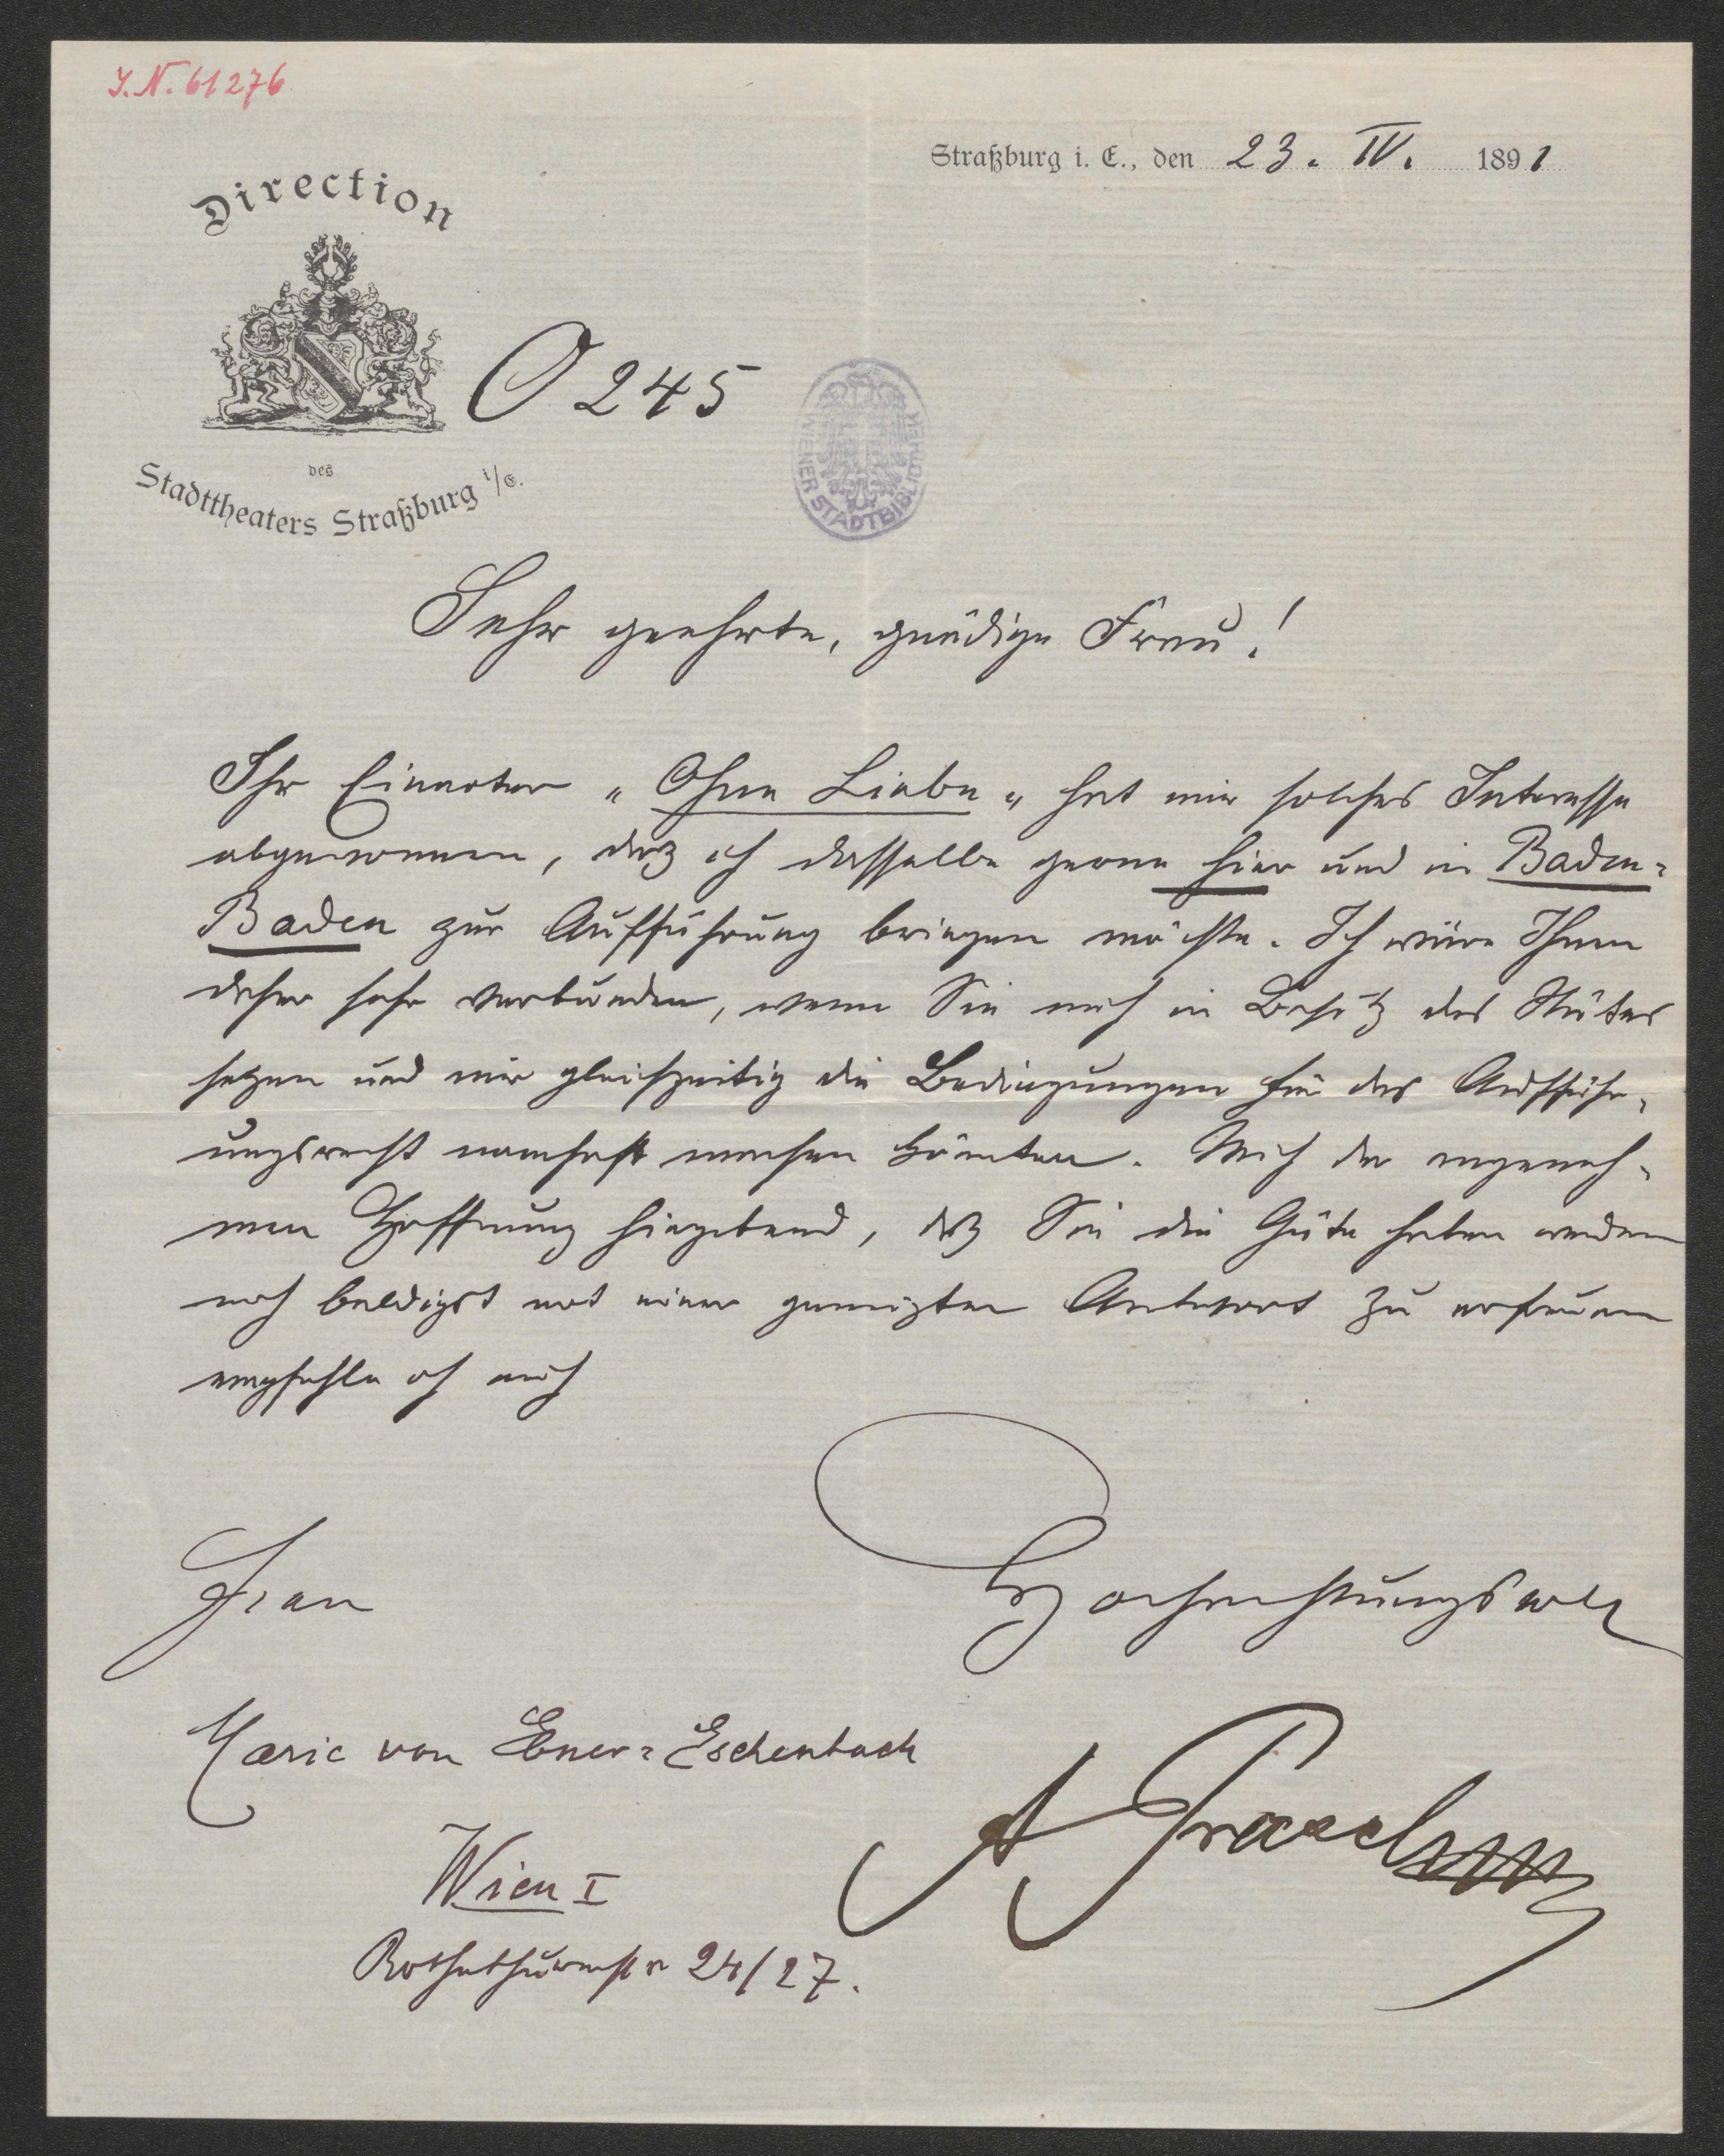 I.N. 61276
Straßburg i. E., den 23. IV. 1891
Direction
O 245
des
Stadttheaters Straßburg i/E.
WIENER STADTBIBLIOTHEK
Sehr geehrte, gnädige Frau!
Ihr Einacter "Ohne Liebe" hat mir solches Interesse
abgewonnen, daß ich dasselbe gerne hier und in Baden-
Baden zur Aufführung bringen möchte. Ich wäre Ihnen
daher sehr verbunden, wenn Sie mich in Besitz des Stückes
setzen und mir gleichzeitig die Bedingungen für das Aufführ-
ungsrecht namhaft machen könnten. Mich der angeneh-
men Hoffnung hingebend, daß Sie die Güte haben werden
mich baldigst mit einer geneigten Antwort zu erfreuen
empfehle ich mich
Hochachtungsvoll
Frau
Marie von Ebner-Eschenbach
A Prasch
Wien I
Rothethurmstr 24/27.